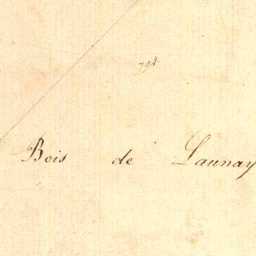 Bois de Launay